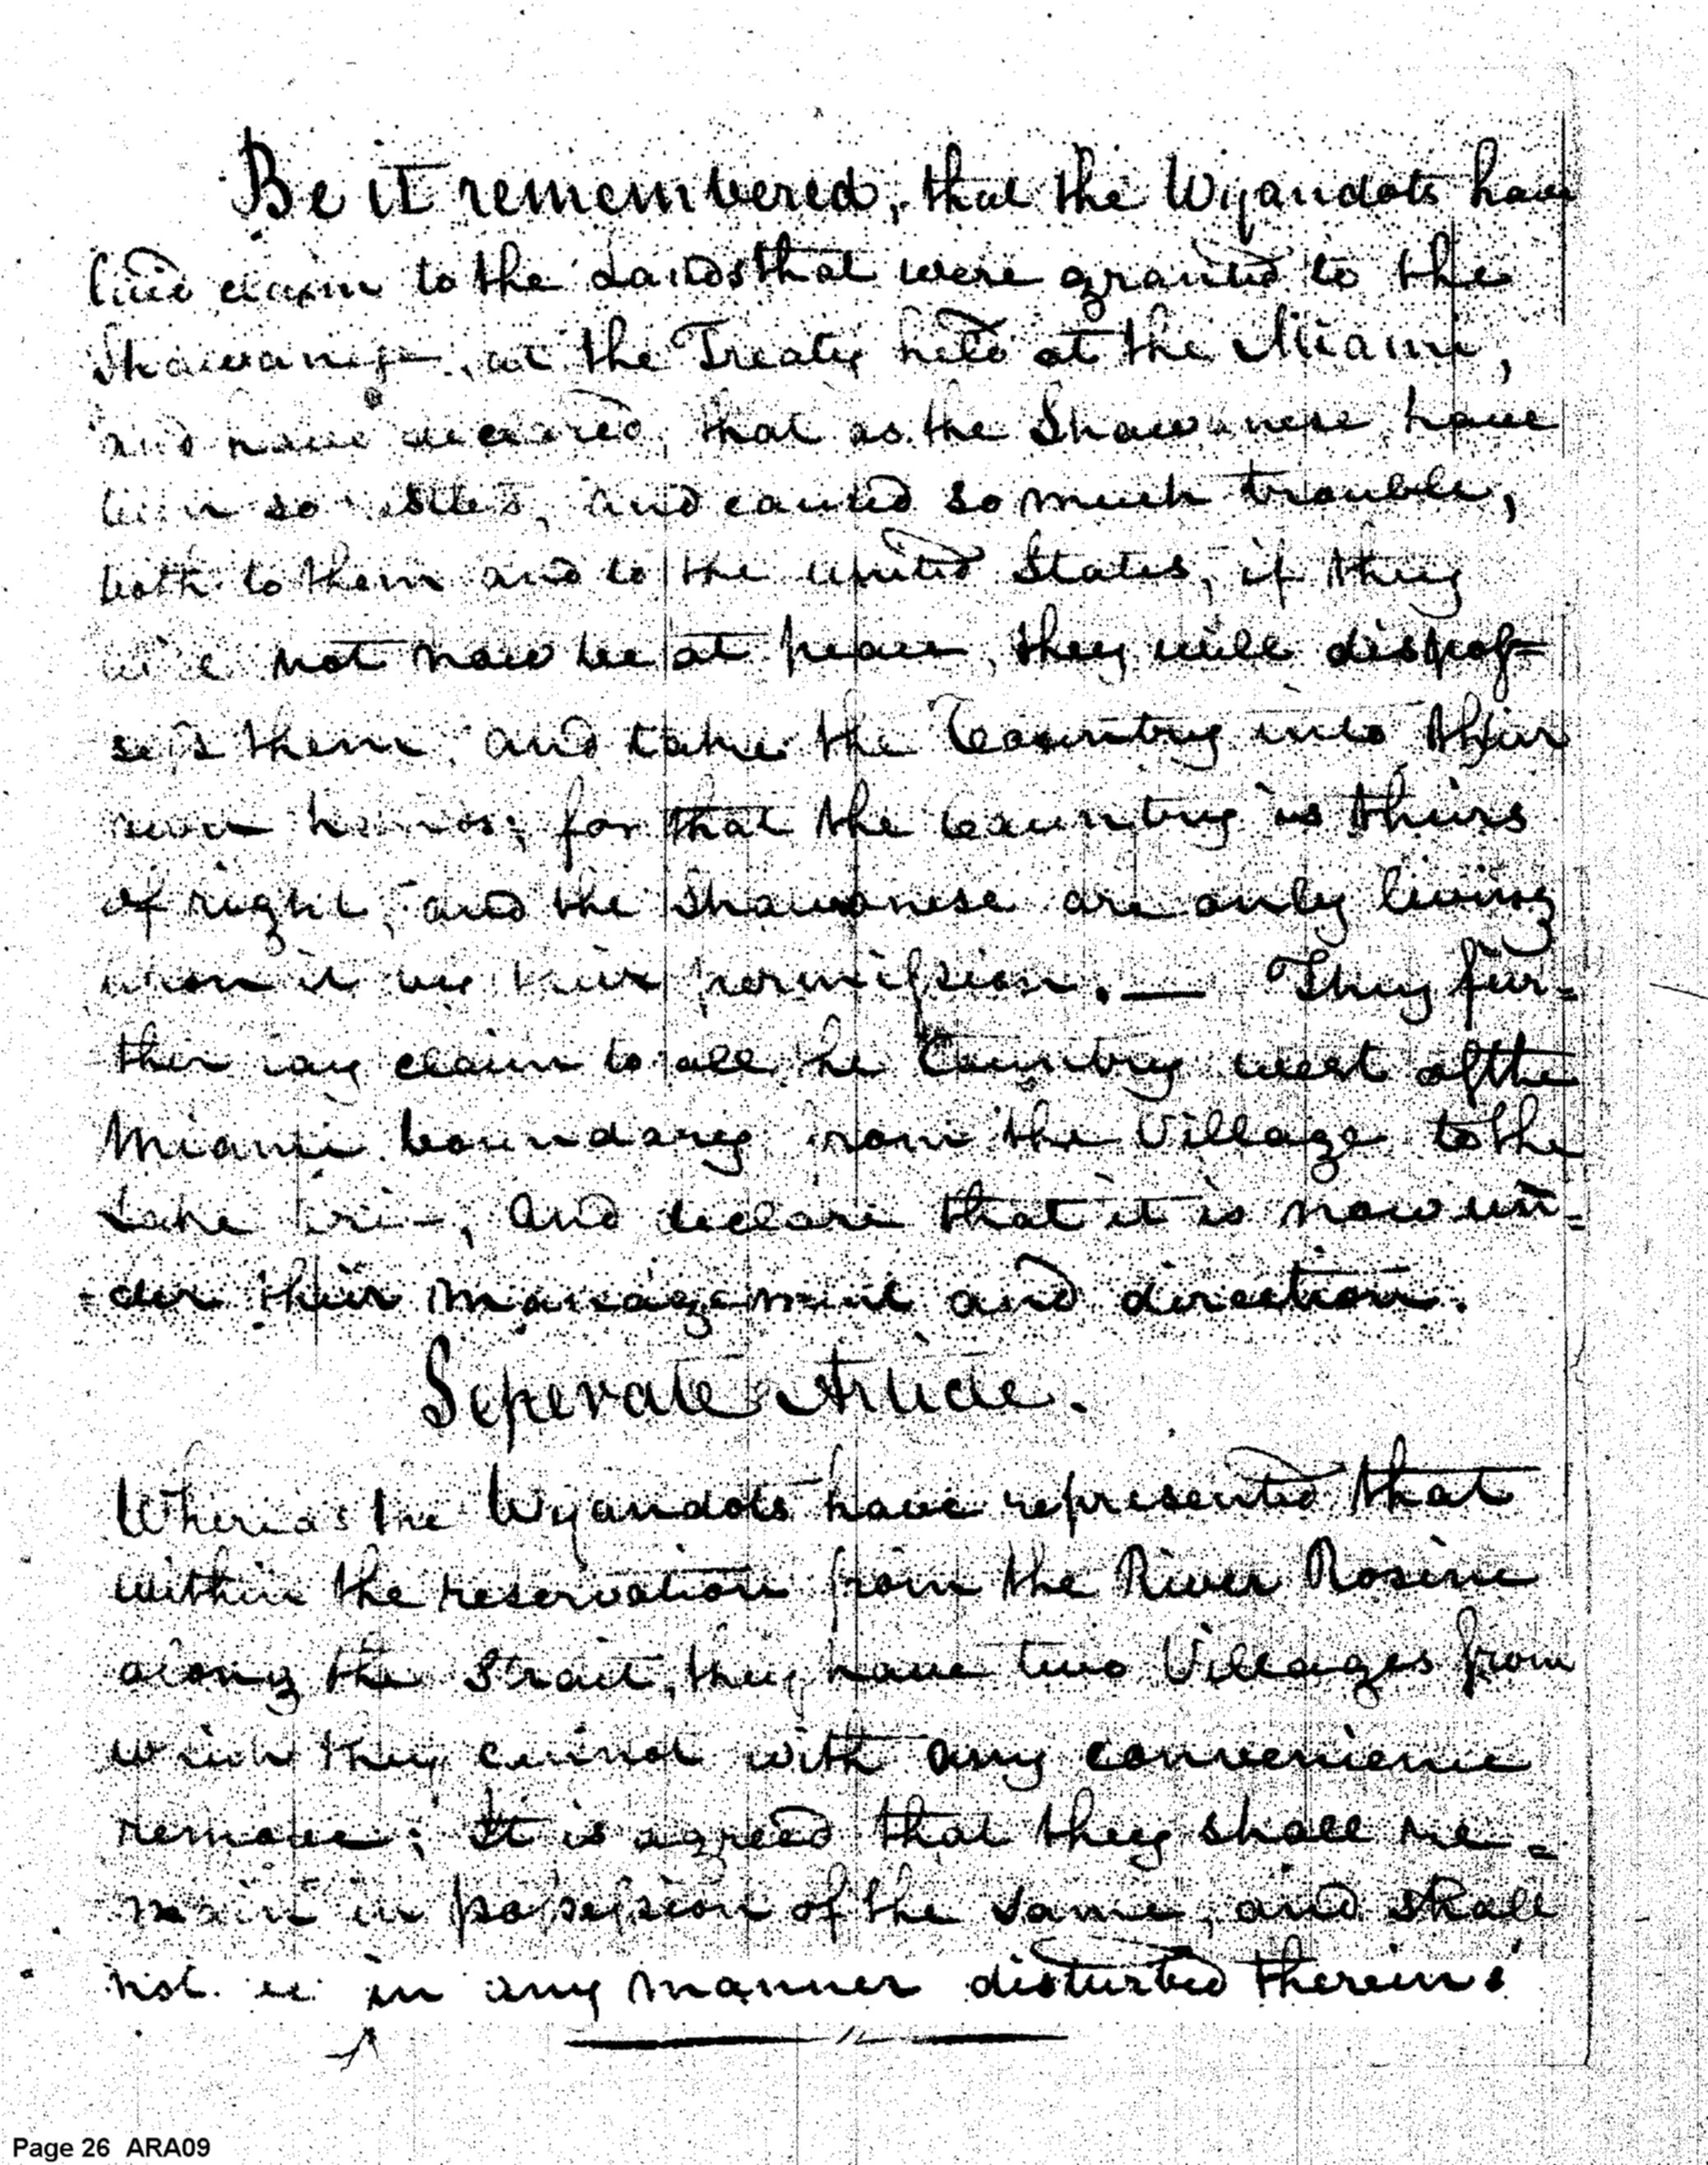 Be it remembered, that the Wyandots have
laid claim to the Lands that were granted to the
Shawanese, at the Treaty held at the Miami,
and have declared, that as the Shawanese have
been so restless, and caused so much trouble,
both to them and to the United States, if they
will not now be at peace, they will dispos=
sess them, and take the Country into their
own hands; for that the Country is theirs
of right, and the Shawanese are only living
upon it by their permission. — They fur=
ther lay claim to all the Country west of the
Miami boundary from the Village to the
Lake Erie, and declare that it is now un=
=der their management and direction.
Seperate Article.
Whereas the Wyandots have represented that
within the reservation from the River Rosine
along the Strait, they have two Villages from
which they cannot with any convenience
remove; It is agreed that they shall re=
main in possession of the same, and shall
not be in any manner disturbed therein.
Page 26 ARA09